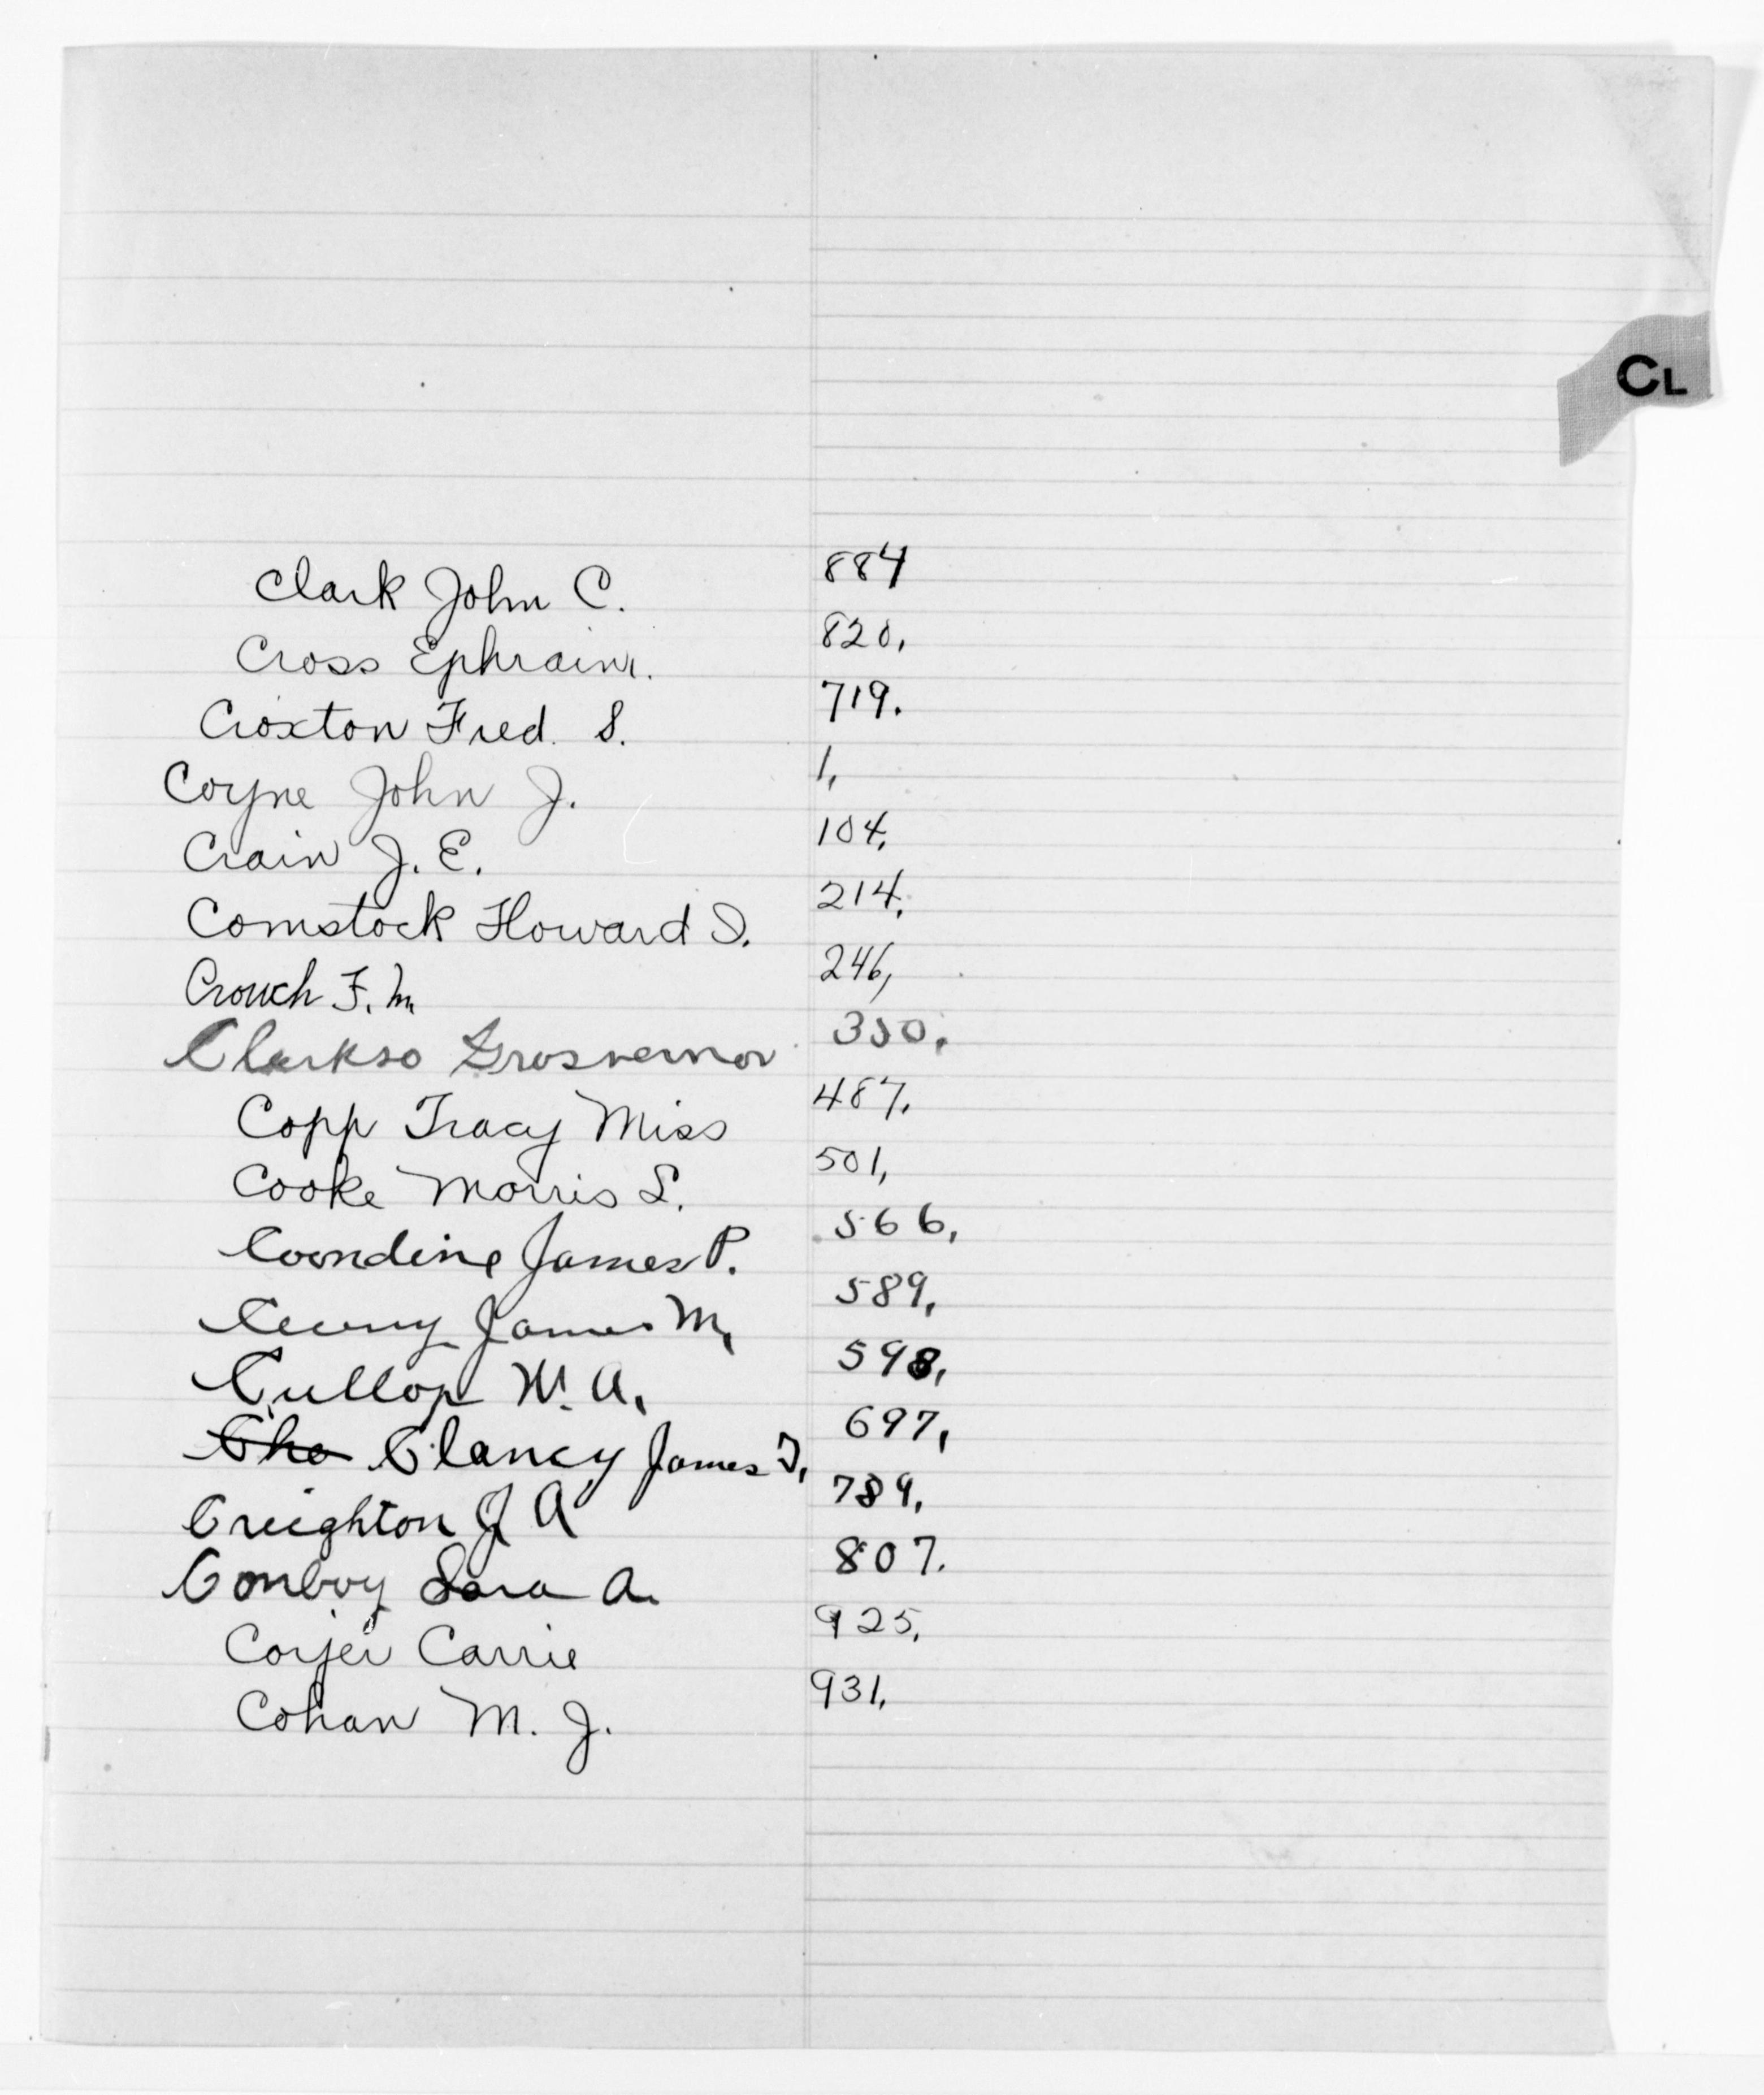 CL
Clark John C. 884
Cross Ephraim. 820,
Croxton Fred. S. 719.
Coyne John J. 1,
Crain J. E. 104,
Comstock Howard D. 214,
Crouch F. M. 246,
Clarkso Grosvernor 350,
Copp Tracy Miss 487,
Cooke Morris L. 501,
James P. 566,
James M, 589,
Cullop W. A, 598,
Cho Clancy James T, 697,
Creighton J A 789,
Conboy Sara A. 807.
Carrie 925,
Cohan M. J. 931,